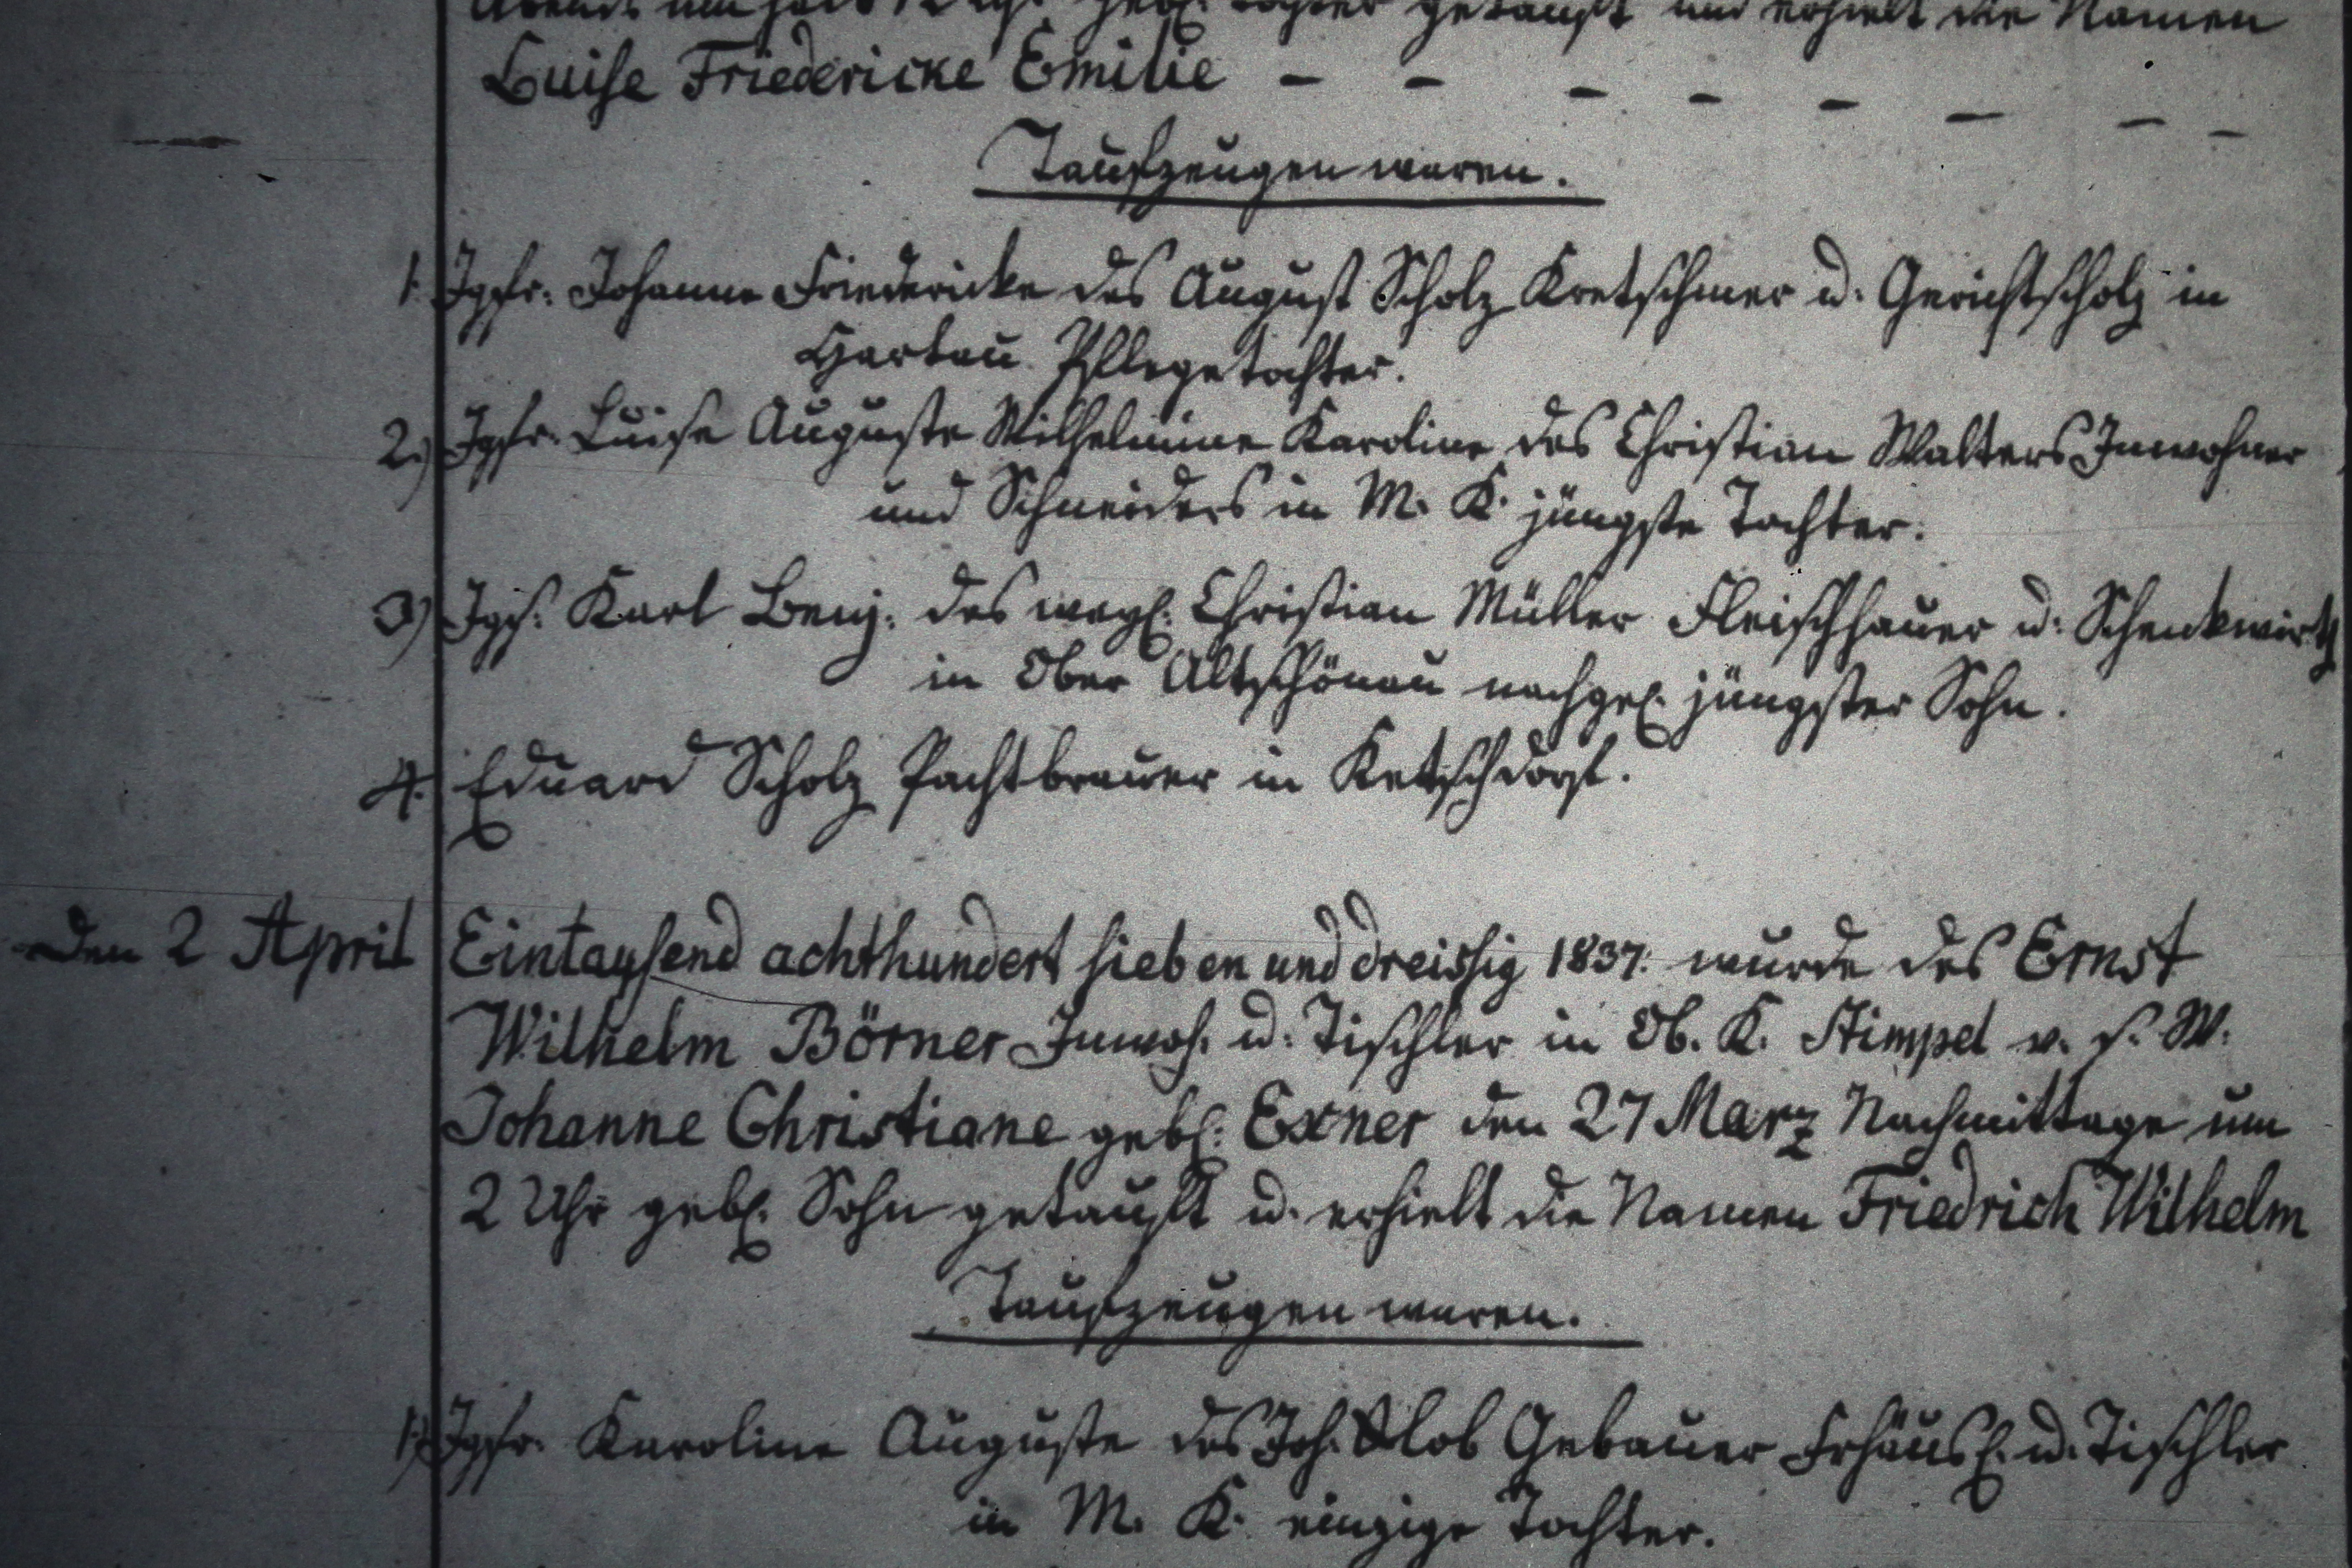 Abends um halb 12 Uhr gebl. Tochter getauft und erhielt die Namen
Luise Friedericke Emilie – – – – – – – –
Taufzeugen waren.
1. Jgfr. Johanne Friedericke des August Scholz Kretschmer u. Gerichtscholz in
Hartau Pflegetochter.
2.) Jgfr. Luise Auguste Wilhelmine Karoline des Christian Walters Inwohner
und Schneiders in M. K. jüngste Tochter.
3) Jgs. Karl Benj. des weyl. Christian Müller Fleischhauer u. Schenkwirth
in Ober Altschönau nachgel. jüngster Sohn.
4. Eduard Scholz Pachtbrauer in Ketschdorf.
Den 2 April Eintausend achthundert sieben und dreissig 1837. wurde des Ernst
Wilhelm Börner Inwoh. u. Tischler in Ob. K. Stimpel v. s. W.
Johanne Christiane gebl. Exner den 27 März Nachmittage um
2 Uhr gebl. Sohn getauft u. erhielt die Namen Friedrich Wilhelm
Taufzeugen waren.
1.) Jgfr. Karoline Auguste des Joh. Glob Gebauer Frhäusl. u. Tischler
in M. K. einzige Tochter.